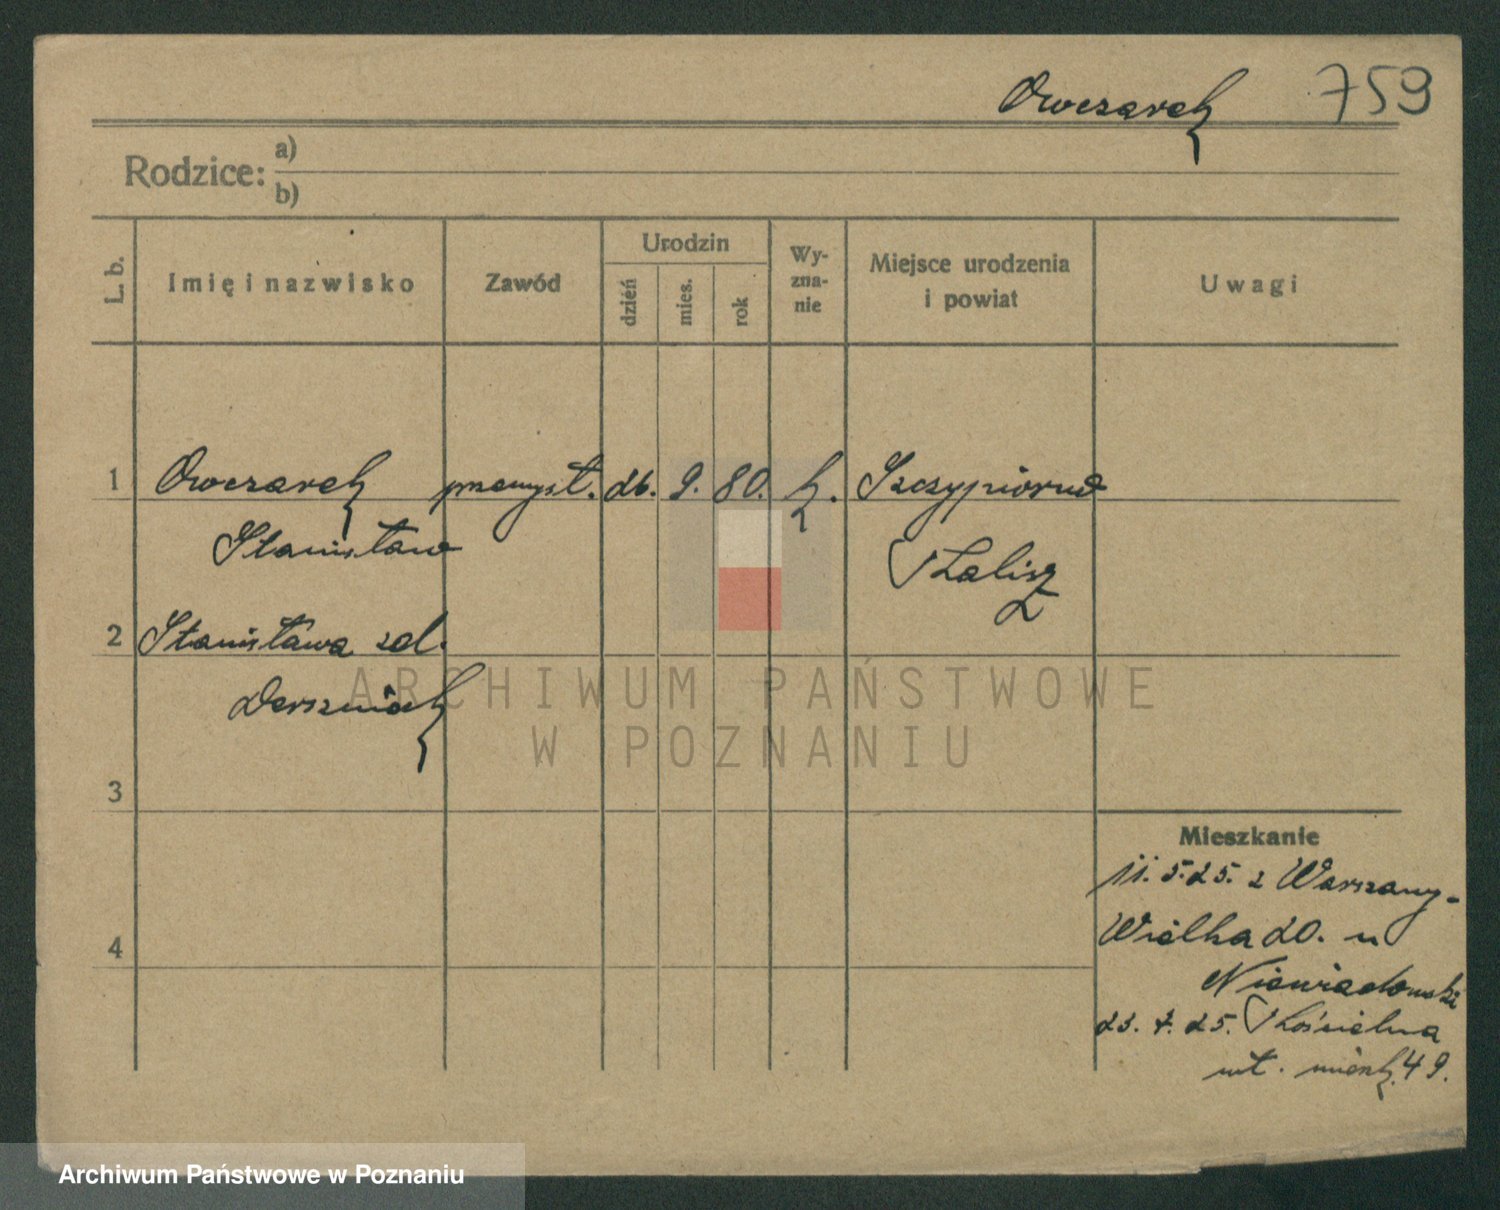 Owczarek 759
Rodzice: a)
b)
L. b. Imię i nazwisko Zawód Urodzin dzień mies. rok Wy-zna-nie Miejsce urodzenia i powiat Uwagi
1 Owczarek przemysł. 26. 9. 80. k. Szczypiorno
Stanisław Kalisz
2 Stanisława zd.
ARCHIWUM PAŃSTWOWE
W POZNANIU
3
Mieszkanie
11. 5. 25. z Warszawy-
4 Wielka 20. u
Niewiadomski
25. Kościelna
wł. mieszk. 49.
Archiwum Państwowe w Poznaniu